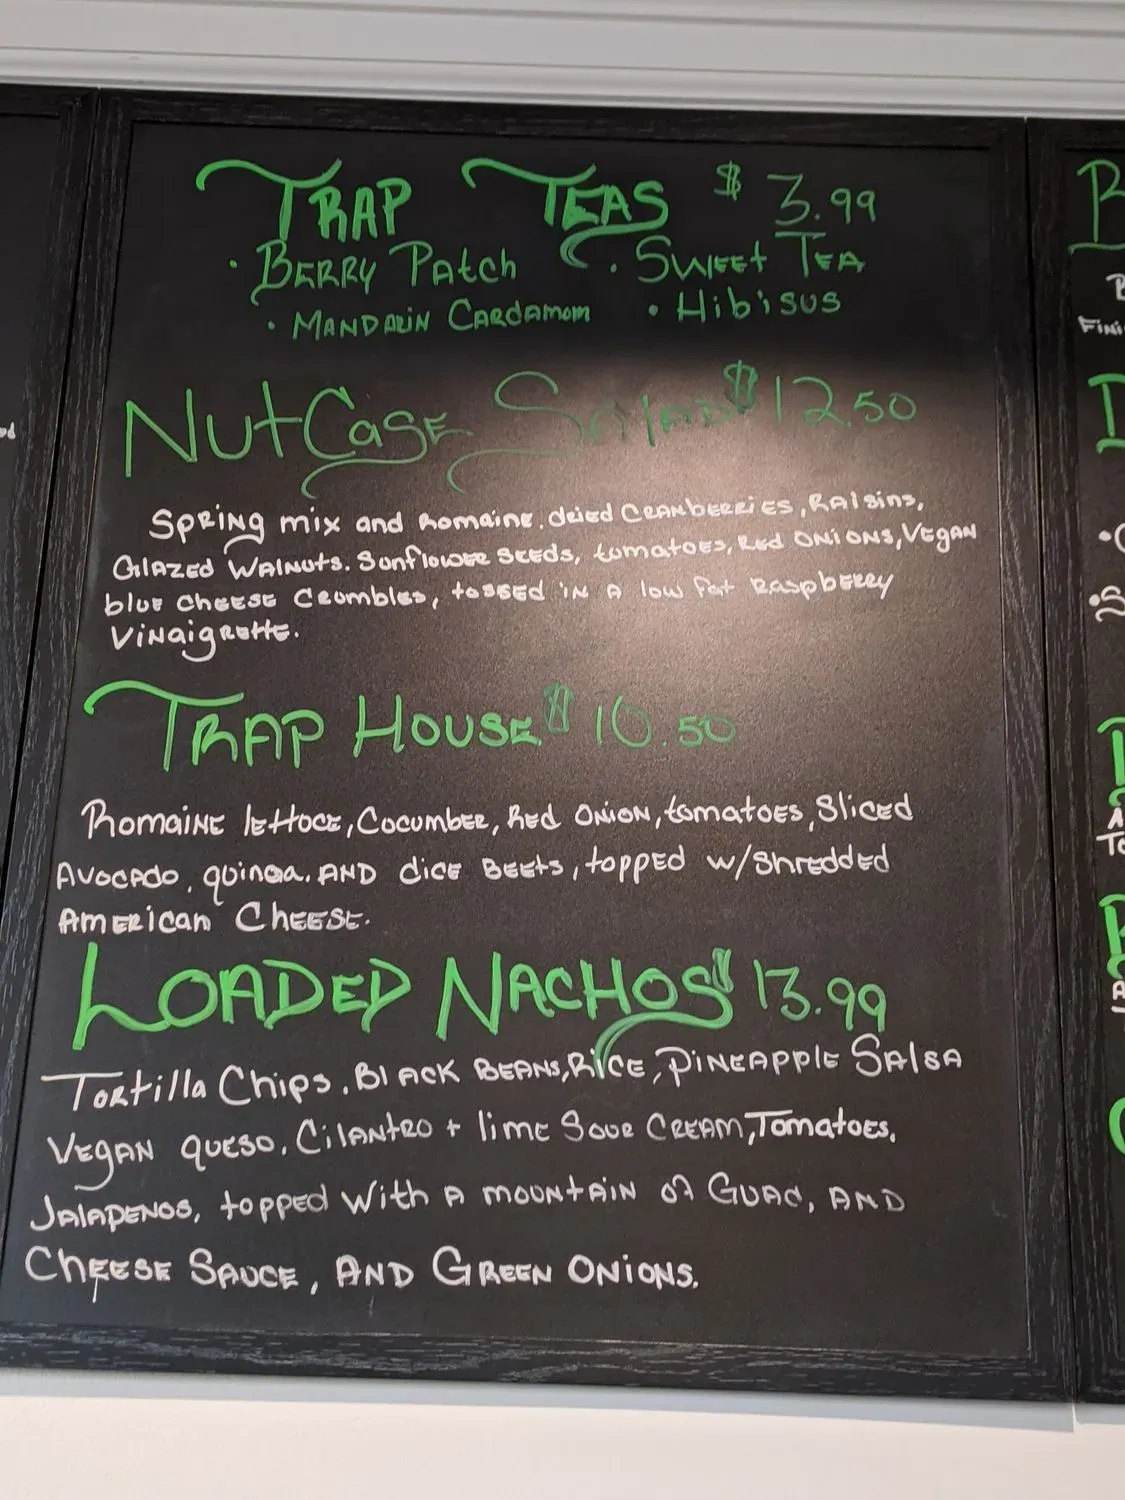 TRAP TEAS $ 3.99
• BERRY PATCH • SWEET TEA
• MANDARIN CARDAMOM • Hibisus
NUTCASE SALAD $ 12.50
SPRING mix and Romaine, dried CRANBERRIES, RAISINS,
GLAZED WALNUTS. Sunflower SEEDS, tomatoes, RED ONIONS, VEGAN
blue CHEESE CRUMBLES, tossed IN A low fat RASPBERRY
VINAIGRETTE.
TRAP HOUSE $ 10.50
Romaine lettuce, Cucumber, Red ONION, tomatoes, Sliced
AVOCADO, quinoa, AND dice BEETS, topped w/Shredded
American CHEESE.
LOADED NACHOS $ 13.99
Tortilla Chips, BLACK BEANS, RICE, PINEAPPLE SALSA
VEGAN QUESO, CILANTRO + lime SOUR CREAM, TOMATOES,
JALAPENOS, topped WITH A MOUNTAIN of GUAC, AND
CHEESE SAUCE, AND GREEN ONIONS.